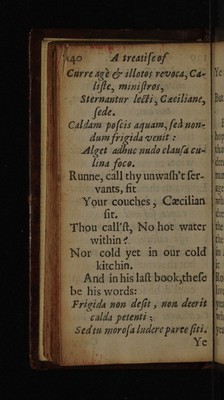 140 A treatise of
Curre agè & illotos revoca, Ca-
liste, ministros,
Sternantur lecti, Cæciliane,
sede.
Caldam poscis aquam, sed non-
dum frigida venit:
Alget adhuc nudo clausa cu-
lina foco.
Runne, call thy unwash't ser-
vants, sit
Your couches, Cæcilian
sit.
Thou call'st, No hot water
within?
Nor cold yet in our cold
kitchin.
And in his last book, these
be his words:
Frigida non desit, non deerit
calda petenti;
Sed tu morosa ludere parce siti.
Ye